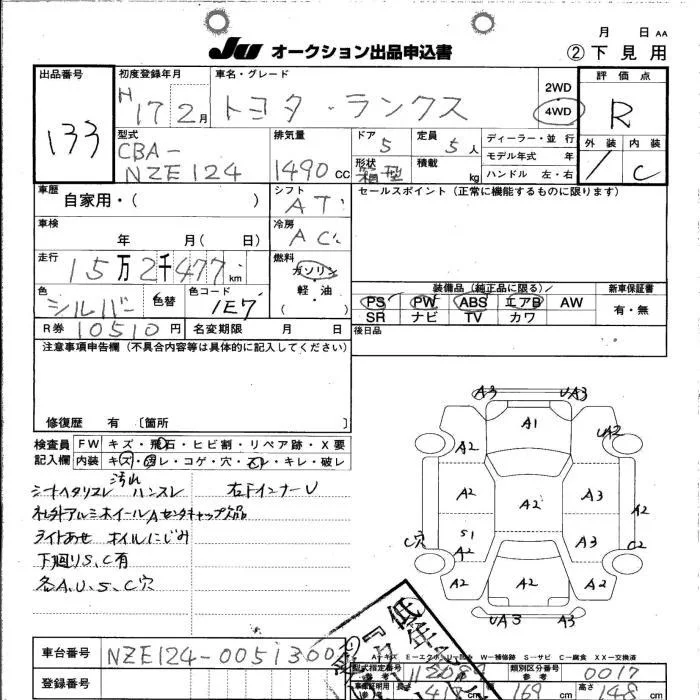 月 日 AA
JU オークション出品申込書
② 下見用
出品番号
133
初度登録年月
H 17 2月
車名・グレード
トヨタ・ランクス
2WD
4WD
評価点
R
型式
CBA-
NZE124
排気量
1490 CC
ドア
5
定員
5人
ディーラー・並行
モデル年式 年
ハンドル 左・右
形状
箱型
積載
kg
外装 内装
/ C
車歴
自家用・( )
シフト
AT
セールスポイント(正常に機能するものに限ります)
車検
年 月( 日)
冷房
AC
走行
15万2千477km
燃料
ガソリン
軽・油
( )
色
シルバー
色替
色コード
1E7
装備品(純正品に限る)/
新車保証書
PS PW ABS エアB AW
SR ナビ TV カワ
有・無
R券 10510円
名変期限 月 日
後日品
注意事項申告欄(不具合内容等は具体的に記入してください)
修復歴 有 〔箇所 〕
検査員
記入欄
FW キズ・飛石・ヒビ割・リペア跡・X要
内装 キズ・コゲ・穴・キレ・破レ
汚れ
シートヘタリスレ ハンスレ 右ドインナーU
社外アルミホイールA センタキャップ欠品
ライトあせ オイルにじみ
下廻りS、C有
各A、U、S、C穴
A3 UA3
A1
A2 UA2
A2 A2 A3 A2
C穴 S1 A2 A3 C2
A2 A2 A2
UA3 A3
A‥キズ E‥エクボ U‥凹み W‥補修跡 S‥サビ C‥腐食 XX‥交換済
車台番号
NZE124-0051300
登録番号
型式指定番号
類別区分番号
0017
参考
長さ
cm
幅
169
cm
高さ
148
cm